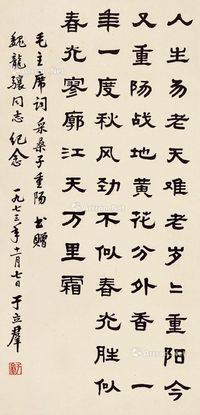 人生易老天难老岁〻重阳今
又重阳战地黄花分外香一
年一度秋风劲不似春光胜似
春光寥廓江天万里霜
毛主席词采桑子重阳 书赠
魏龍驤同志 纪念
一九七三年十一月七日 于立群